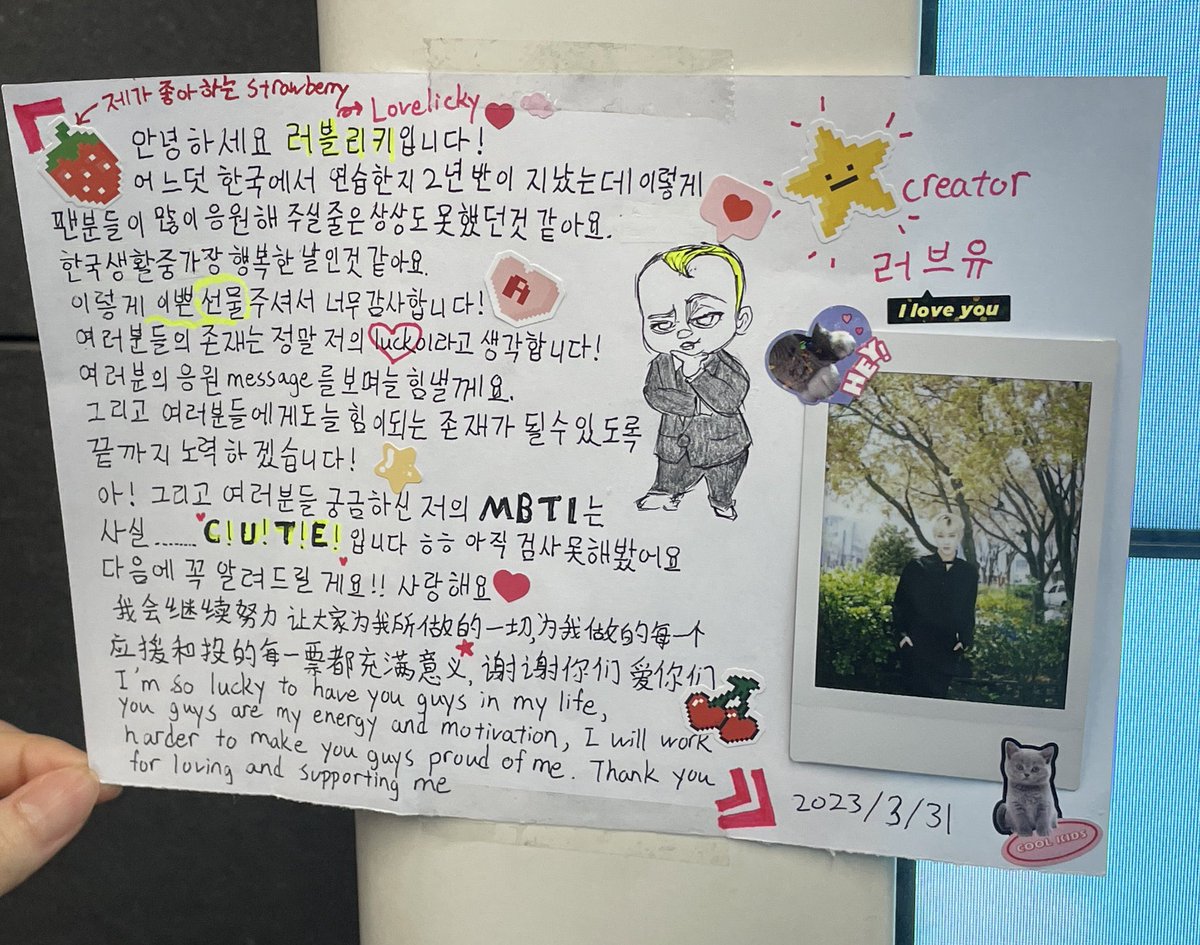 제가 좋아하는 Strawberry
Lovelicky
안녕하세요 러블리키입니다!
어느덧 한국에서 연습한지 2년 반이 지났는데 이렇게
팬분들이 많이 응원해 주실 줄은 상상도 못했던것 같아요.
한국생활중 가장 행복한 날인것 같아요.
이렇게 이쁜 선물 주셔서 너무 감사합니다!
여러분들의 존재는 정말 저의 luck이라고 생각합니다!
여러분의 응원 message를 보며 늘 힘낼게요.
그리고 여러분들에게도 늘 힘이되는 존재가 될 수 있도록
끝까지 노력하겠습니다!
아! 그리고 여러분들 궁금하신 저의 MBTI는
사실 ........ C!U!T!E! 입니다 ㅎㅎ 아직 검사못해봤어요
다음에 꼭 알려드릴 게요!! 사랑해요
我会继续努力 让大家为我所做的一切,为我做的每一个
应援和投的每一票都充满意义, 谢谢你们 爱你们
I'm so lucky to have you guys in my life,
you guys are my energy and motivation, I will work
harder to make you guys proud of me. Thank you
for loving and supporting me
creator
러브유
I love you
HEY!
2023/3/31
COOL KIDS